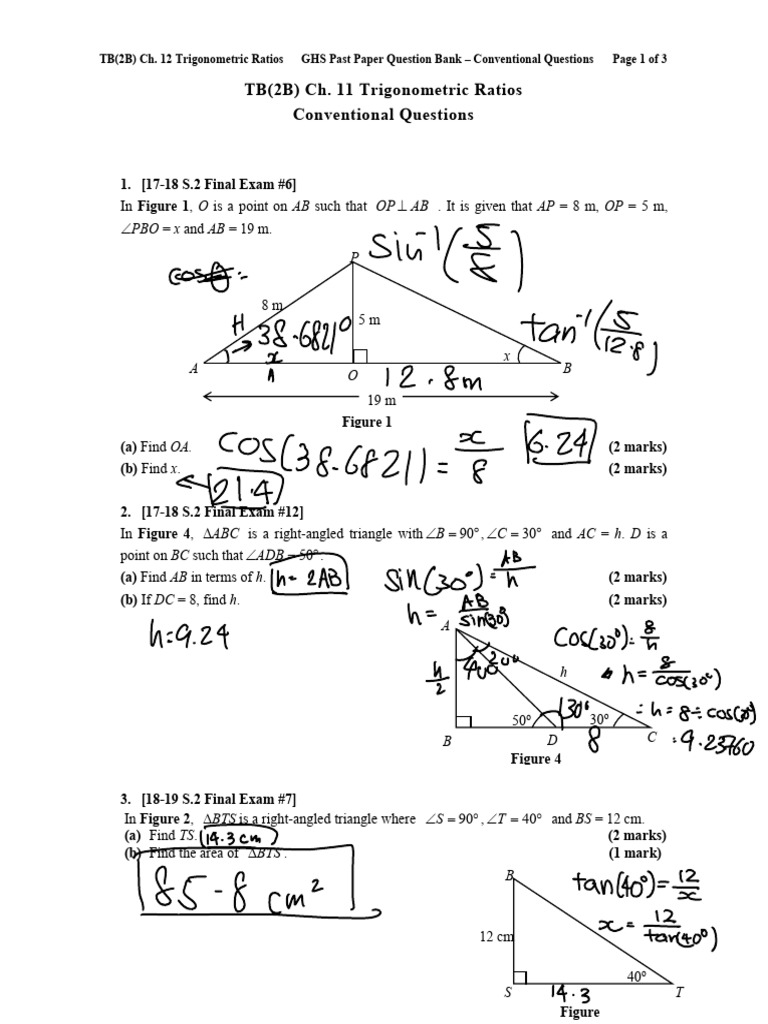 TB(2B) Ch. 12 Trigonometric Ratios GHS Past Paper Question Bank – Conventional Questions Page 1 of 3
TB(2B) Ch. 11 Trigonometric Ratios
Conventional Questions
1. [17-18 S.2 Final Exam #6]
In Figure 1, O is a point on AB such that OP ⊥ AB . It is given that AP = 8 m, OP = 5 m,
∠PBO = x and AB = 19 m.
P
sin⁻¹(5/8)
8 m
H
38.6821
O
5 m
tan⁻¹(5/12.8)
x
x
A
A
O
12.8m
B
19 m
Figure 1
(a) Find OA.
cos(38.6821) = x/8
6.24
(2 marks)
(b) Find x.
21.4
(2 marks)
2. [17-18 S.2 Final Exam #12]
In Figure 4, ΔABC is a right-angled triangle with ∠B = 90°, ∠C = 30° and AC = h. D is a
point on BC such that ∠ADB = 50°.
(a) Find AB in terms of h.
h= 2AB
sin(30°)= AB/h
(2 marks)
(b) If DC = 8, find h.
h= AB/sin(30°)
(2 marks)
h=9.24
A
cos(30°)= 8/h
h
h= 8/cos(30°)
h/2
= h= 8÷cos(30°)
50°
130°
30°
B
D
8
C
=9.23760
Figure 4
3. [18-19 S.2 Final Exam #7]
In Figure 2, ΔBTS is a right-angled triangle where ∠S = 90°, ∠T = 40° and BS = 12 cm.
(a) Find TS.
14.3cm
(2 marks)
(b) Find the area of ΔBTS .
(1 mark)
85-8 cm²
B
tan(40°)= 12/x
x = 12/tan(40°)
12 cm
40°
S
14.3
T
Figure